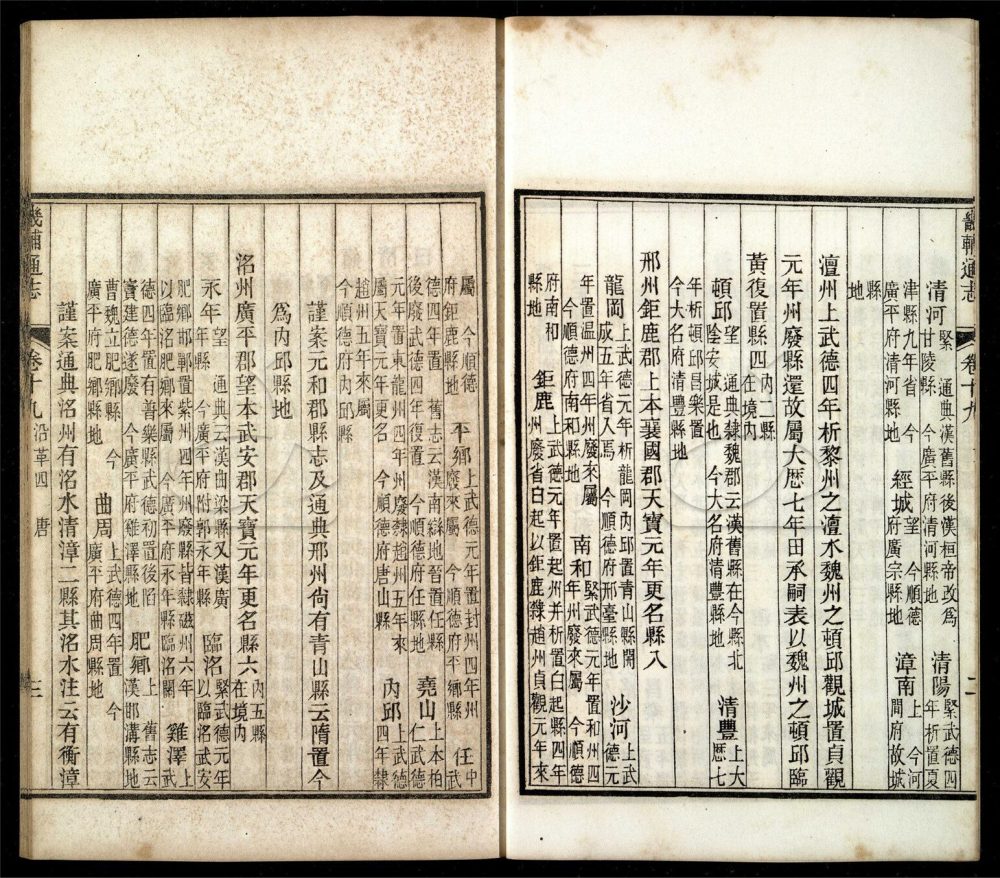 畿輔通志 卷十九 二
清河 緊 通典漢舊縣後漢桓帝改為
甘陵縣 今廣平府清河縣地 清陽 緊武德四
年析置夏
津縣九年省 今
廣平府清河縣地 經城 望 今順德
府廣宗縣地 漳南 上 今河
間府故城
縣
地
澶州上武德四年析黎州之澶水魏州之頓邱觀城置貞觀
元年州廢縣還故屬大歷七年田承嗣表以魏州之頓邱臨
黃復置縣四 內二縣
在境內
頓邱 望 通典隸魏郡云漢舊縣在今縣北
陰安城是也 今大名府清豐縣地 清豐 上大
歷七
年析頓邱昌樂置
今大名府清豐縣地
邢州鉅鹿郡上本襄國郡天寶元年更名縣八
龍岡 上武德元年析龍岡內邱置青山縣開
成五年省入焉 今順德府邢臺縣地 沙河 上武
德元
年置溫州四年州廢來屬
今順德府南和縣地 南和 緊武德元年置和州四
年州廢來屬 今順德
府南和
縣地 鉅鹿 上武德元年置起州并析置白起縣四年
州廢省白起以鉅鹿隸趙州貞觀元年來
屬 今順德
府鉅鹿縣地 平鄉 上武德元年置封州四年州
廢來屬 今順德府平鄉縣 任 中
武
德四年置 舊志云漢南䜌地晉置任縣
後廢武德四年復置 今順德府任縣地 堯山 上本柏
仁武德
元年置東龍州四年州廢隸趙州五年來
屬天寶元年更名 今順德府唐山縣 內邱 上武德
四年隸
趙州五年來屬
今順德府內邱縣
謹案元和郡縣志及通典邢州尚有青山縣云隋置今
為內邱縣地
洺州廣平郡望本武安郡天寶元年更名縣六 內五縣
在境內
永年 望 通典云漢曲梁縣又漢廣
年縣 今廣平府附郭永年縣 臨洺 緊武德元年
以臨洺武安
肥鄉邯鄲置紫州四年州廢縣皆隸磁州六年
以臨洺肥鄉來屬 今廣平府永年縣臨洺關 雞澤 上
武
德四年置有善樂縣武德初置後陷
竇建德遂廢 今廣平府雞澤縣地 肥鄉 上 舊志云
漢邯溝縣地
曹魏立肥鄉縣 今
廣平府肥鄉縣地 曲周 上武德四年置 今
廣平府曲周縣地
謹案通典洺州有洺水清漳二縣其洺水注云有衡漳
畿輔通志 卷十九 沿革四 唐 三